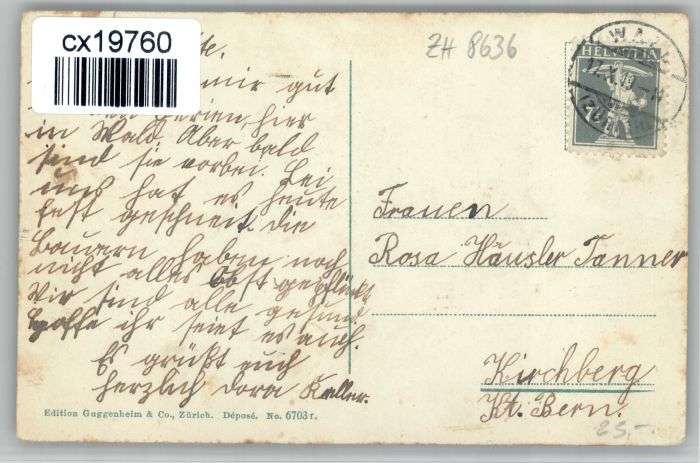 cx19760
ZH 8636
te.
mir gut
Ferien, hier
in Wald Aber bald
sind sie vorbei. Bei
uns hat es heute
fest geschneit. die
Bauern haben noch
nicht alles Obst gepflückt
Wir sind alle gesund
hoffe ihr seiet es auch.
Es grüßt euch
herzlich Dora Keller.
WALD
HELVETIA
Frauen
Rosa Häusler Tanner
Kirchberg
Kt. Bern.
25.-
Edition Guggenheim & Co., Zürich. Déposé. No. 6703 r.